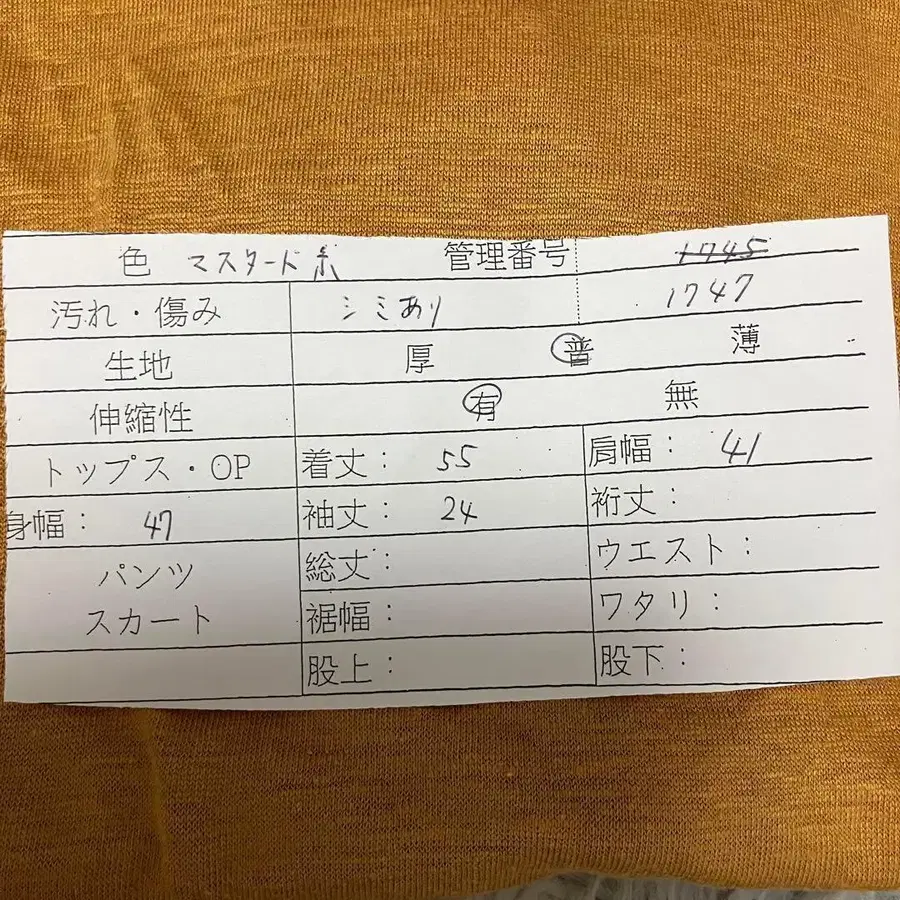 色 マスタード系 管理番号 1745
汚れ・傷み シミあり 1747
生地 厚 普 薄
伸縮性 有 無
トップス・OP 着丈： 55 肩幅： 41
身幅： 47 袖丈： 24 裄丈：
パンツ 総丈： ウエスト：
スカート 裾幅： ワタリ：
股上： 股下：